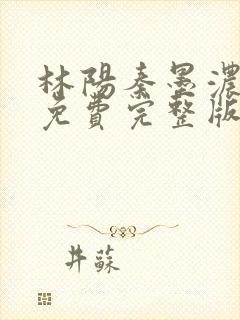 林陽秦墨濃
免費完整版
井蘇